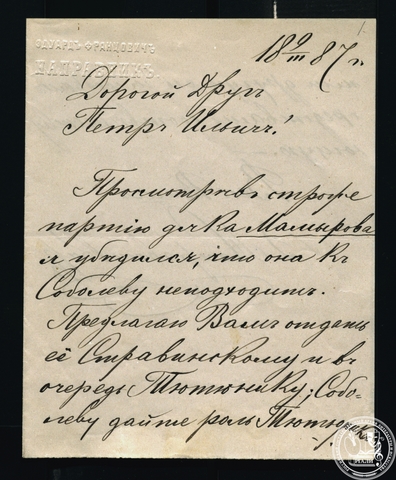 ЭДУАРДЪ ФРАНЦОВИЧЪ
НАПРАВНИКЪ.
18 9/III 87 г.
Дорогой Другъ
Петръ Ильичъ!
Просмотрѣвъ строже
партію дьяка Мамырова
я убѣдился, что она къ
Соболеву неподходитъ.
Предлагаю Вамъ отдать
её Стравинскому и въ
очередь Тютюнику; Собо-
леву дайте роль Тютюника